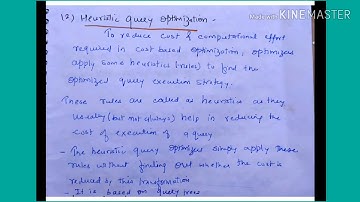 Made with KINEMASTER
12) Heuristic query optimization -
To reduce cost & computational effort
required in cost based optimization, optimizer
apply some heuristics (rules) to find the
optimized query execution strategy.
These rules are called as heuristics as they
usually (but not always) help in reducing the
cost of execution of a query
- The heuristic query optimizer simply apply these
rules without finding out whether the cost is
reduced by this transformation
- It is based on query trees